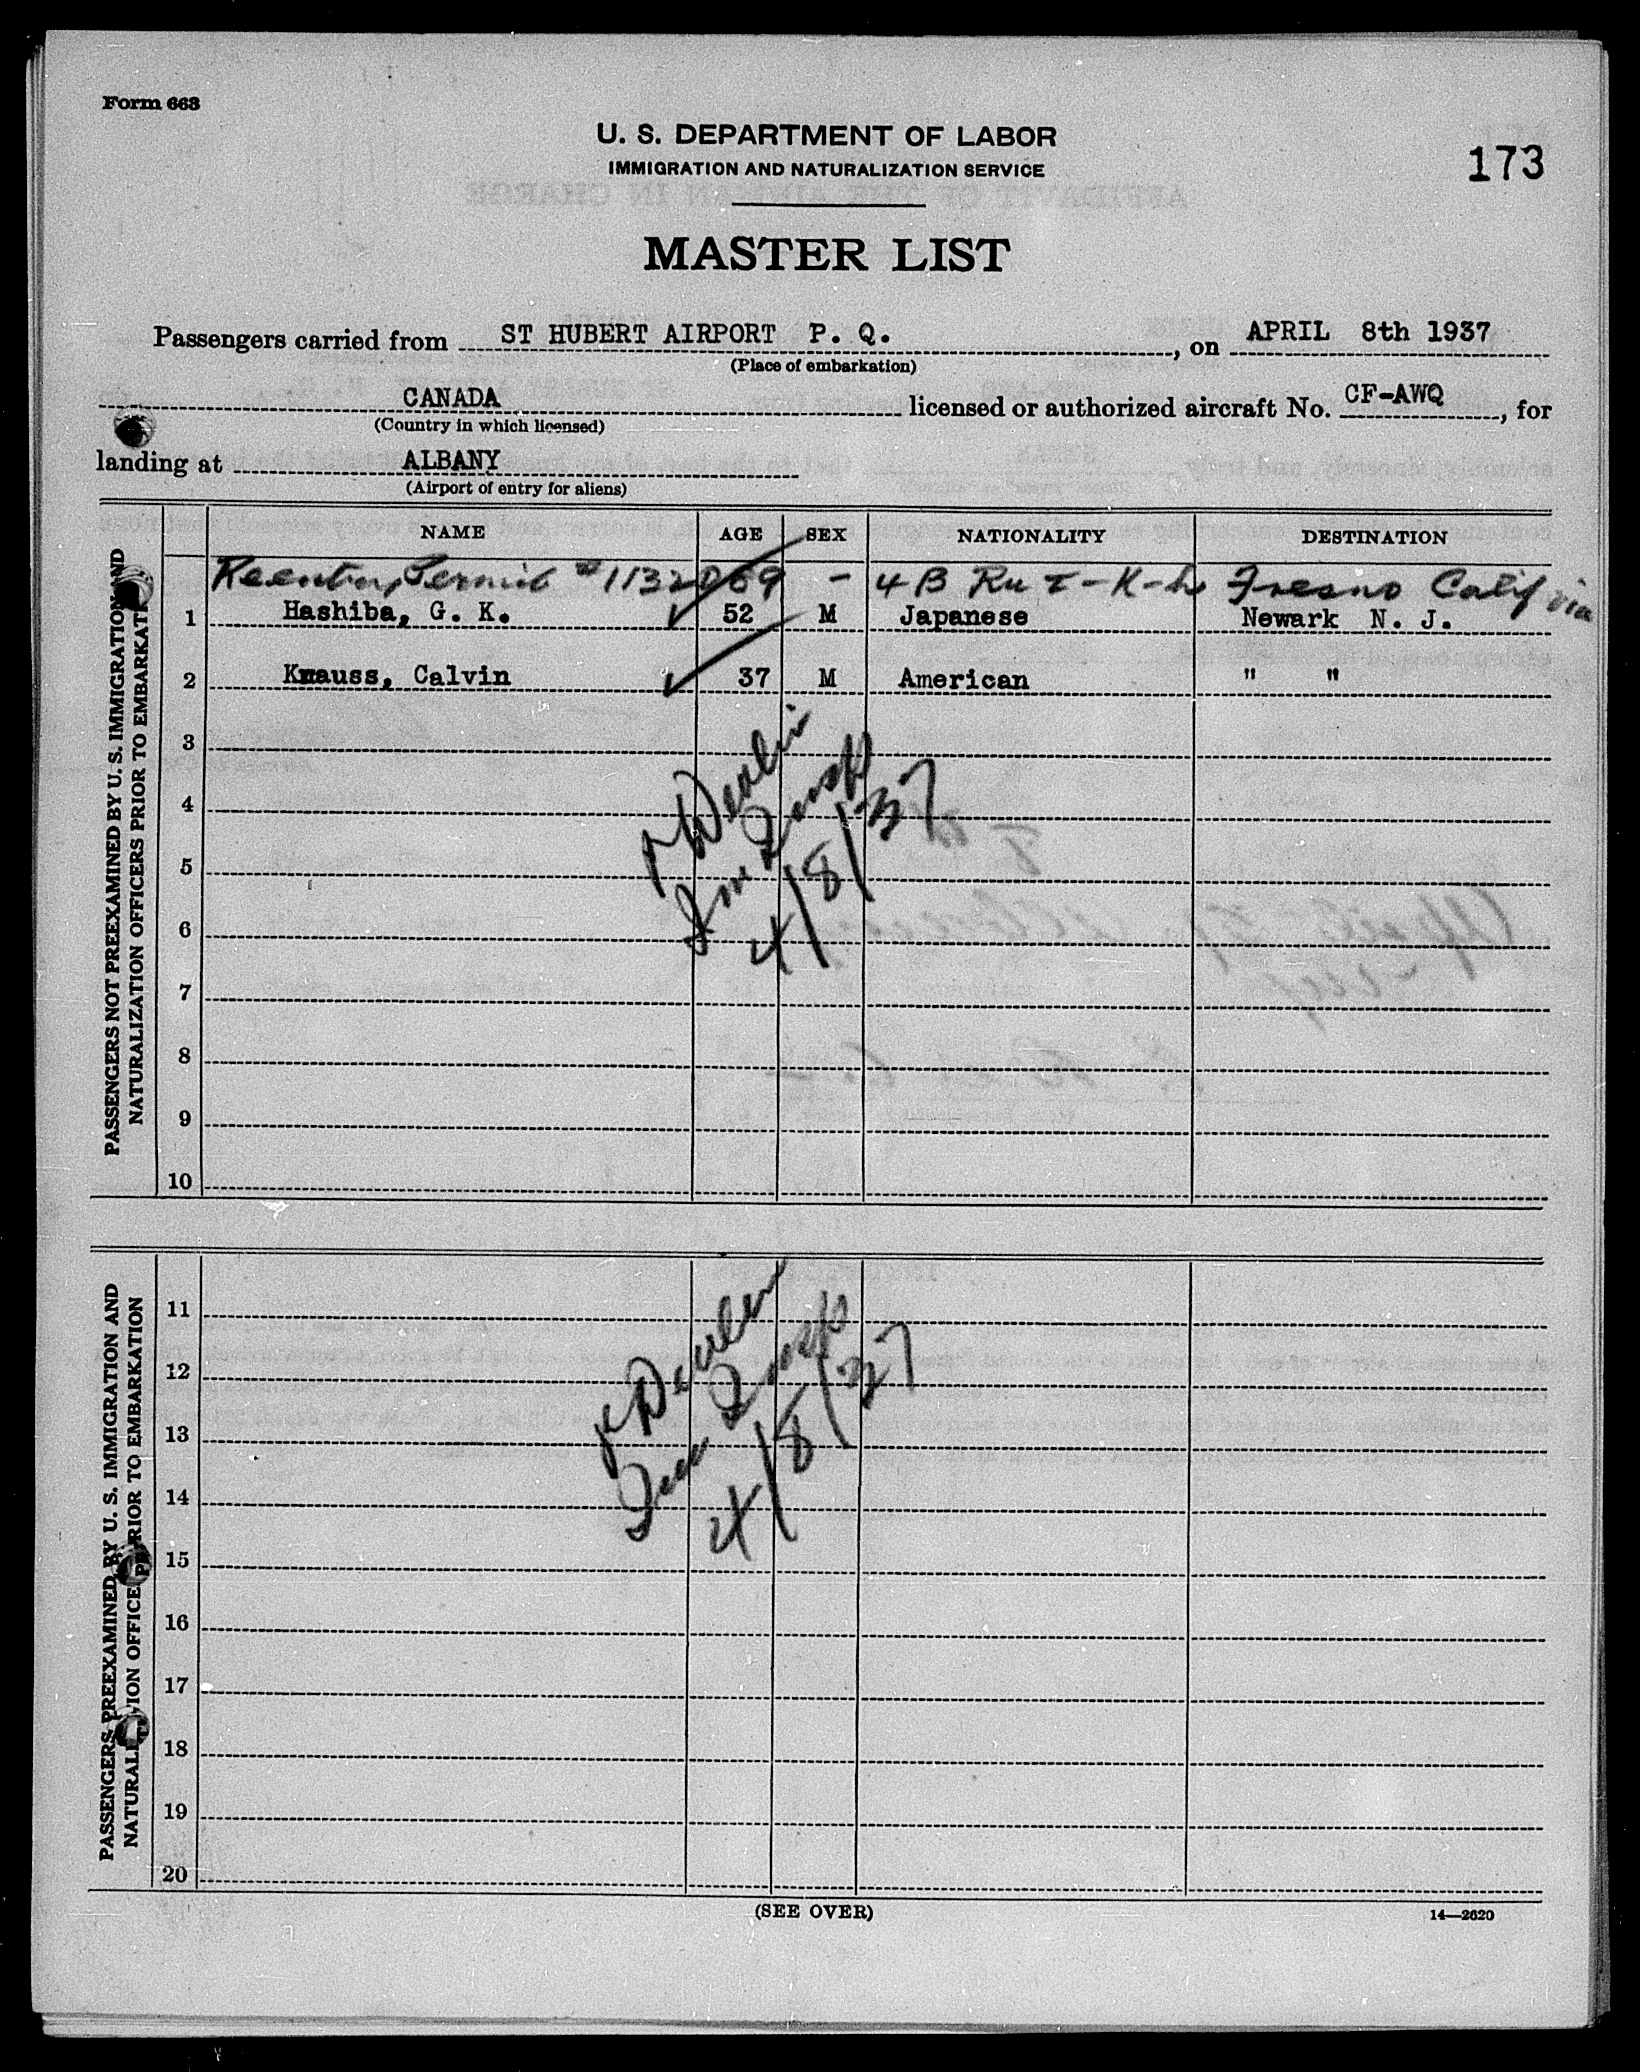 Form 668
U. S. DEPARTMENT OF LABOR
IMMIGRATION AND NATURALIZATION SERVICE
173
MASTER LIST
Passengers carried from ST HUBERT AIRPORT P. Q. , on APRIL 8th 1937
(Place of embarkation)
CANADA licensed or authorized aircraft No. CF-AWQ , for
(Country in which licensed)
landing at ALBANY
(Airport of entry for aliens)
NAME AGE SEX NATIONALITY DESTINATION
PASSENGERS NOT PREEXAMINED BY U. S. IMMIGRATION AND
NATURALIZATION OFFICERS PRIOR TO EMBARKATION
Reentry Permit #1132069 - 4 B Fresno Calif via
1 Hashiba, G. K. 52 M Japanese Newark N. J.
2 Knauss, Calvin 37 M American " "
3
4
5
6
7
8
9
10
4/8/37
PASSENGERS PREEXAMINED BY U. S. IMMIGRATION AND
NATURALIZATION OFFICERS PRIOR TO EMBARKATION
11
12
13
14
15
16
17
18
19
20
4/8/37
(SEE OVER)
14—2620